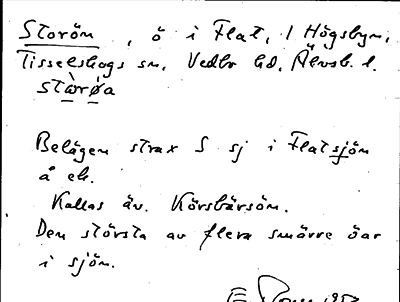 Storön, ö i Flat, / Högsbyn,
Tisselskogs sn. Vedbo hd. Älvsb. l.
stòrø̀a
Belägen strax S sj i Flatsjön
å ek.
Kallas äv. Körsbärsön.
Den största av flera smärre öar
i sjön.